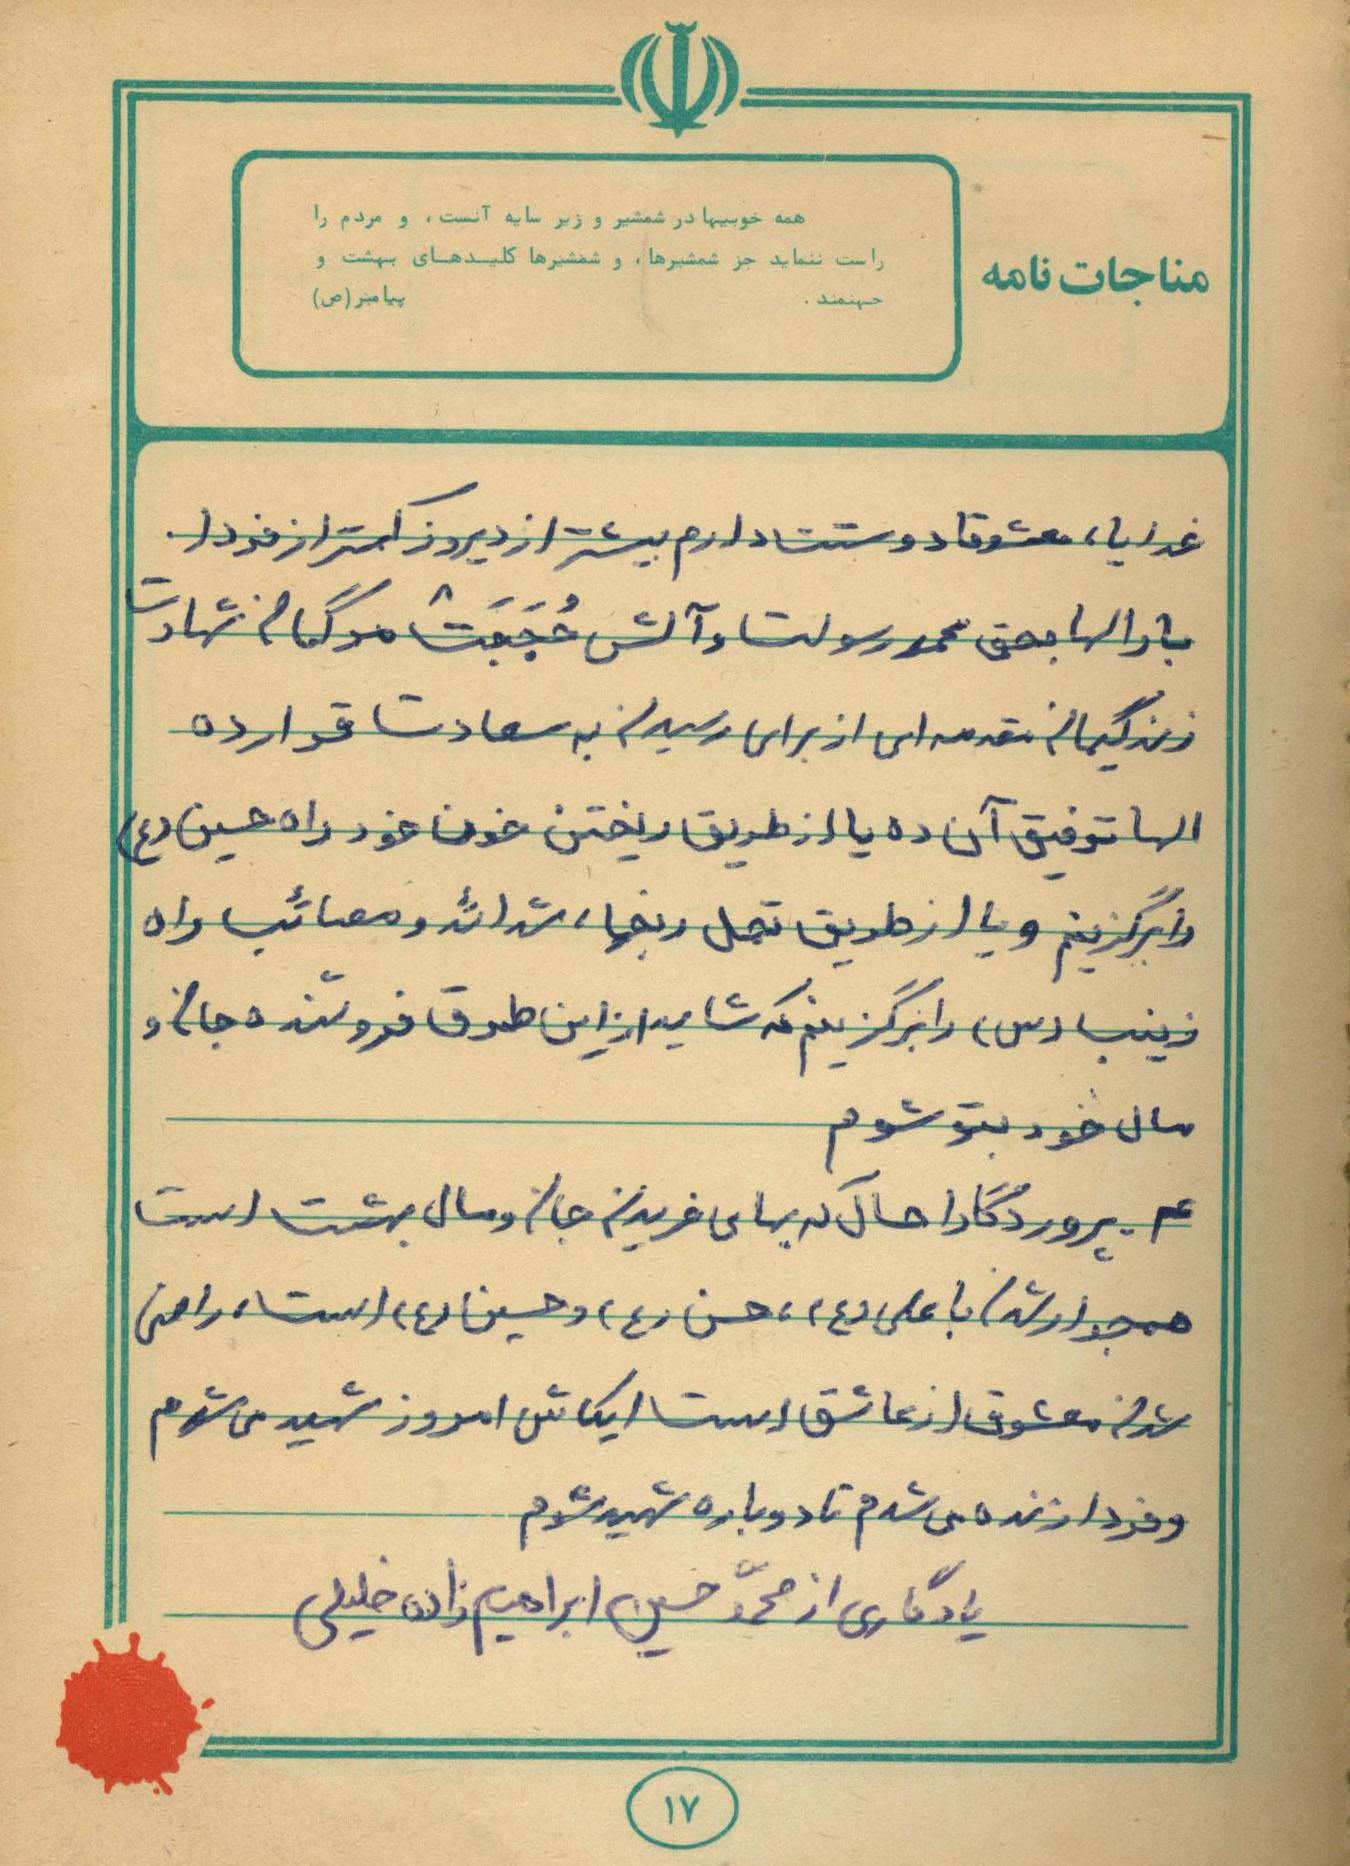 مناجات نامه
همه خوبیها در شمشیر و زیر سایه آنست، و مردم را
راست ننماید جز شمشیرها، و شمشیرها کلیدهای بهشت و
جهنمند. پیامبر(ص)
خدایا، معشوقا دوستت دارم بیشتر از دیروز کمتر از فردا.
بارالها بحق محمد رسولت و آلش حُجَجَت مرگمان شهادت
زندگیمان مقدمه ای از برای رسیدن به سعادت قرار ده
الها توفیق آن ده یا از طریق ریختن خون خود راه حسین (ع)
را برگزینم و یا از طریق تحمل رنجها، شدائد و مصائب راه
زینب (س) را برگزینم که شاید از این طرق فروشنده جان و
مال خود بتو شوم
۴ـ پروردگارا حال که بهای خریدن جان و مال بهشت است
همجوار شدن با علی (ع)، حسن (ع)، و حسین (ع) است، راضی
شدن معشوق از عاشق است ایکاش امروز شهید می شدم
و فردا زنده می شدم تا دوباره شهید شوم
یادگاری از محمّد حسین ابراهیم زاده خلیلی
۱۷